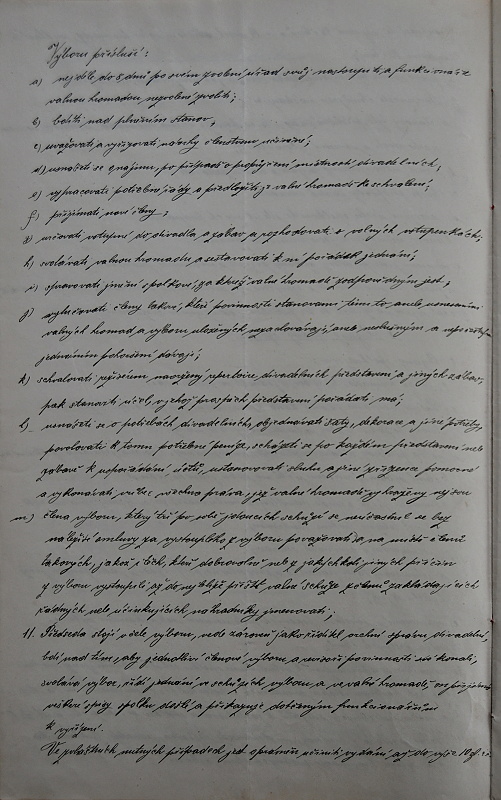 Výboru přísluší:
a) nejdéle do 8 dnů po svém zvolení úřad svůj nastoupiti a funkcionáře
valnou hromadou nezvolené zvoliti;
b) bdíti nad plněním stanov,
c) uvažovati a vyřizovati návrhy členstvem učiněné;
d) usnášeti se o nájmu, po případě o propůjčení místností divadelních;
e) vypracovati potřebné řády a předložiti je valné hromadě ke schválení;
f) přijímati nové členy;
g) určovati vstupné do divadla a zábav a rozhodovati o volných vstupenkách;
h) svolávati valnou hromadu a ustanovovati k ní pořádek jednání;
i) spravovati jmění spolkové, za kteréž valné hromadě zodpovědným jest,
j) vylučovati členy takové, kteří povinnosti stanovami těmito, aneb usneseními
valných hromad a výboru uložených nezachovávají, aneb neslušným a
jednáním pohoršení dávají;
k) schvalovati režisérem navržený repertoire divadelních představení a jiných zábav,
pak stanoviti účel, v jehož prospěch představení pořádati má;
l) usnášeti se o potřebách divadelních, objednávati šaty, dekorace a jiné potřeby,
povolovati k tomu potřebné peníze, scházeti se po každém představení neb
zábavě k uspořádání účtů, ustanovovati sluhu a jiné zřízence pomocné
a vykonávati vůbec všechna práva, jež valné hromadě vyhrazeny nejsou
m) člena výboru, který tří po sobě jdoucích schůzí se nezúčastnil se bez
náležité omluvy za vystouplého z výboru považovati a na místo členů
takových, jakož i těch, kteří dobrovolně neb z jakýchkoli jiných příčin
z výboru vystoupili, až do nejbližší příští valné schůze
náhradníky jmenovati;
11. Předseda stojí v čele výboru, vede zároveň jako ředitel vrchní správu divadelní,
bdí nad tím, aby jednotliví členové výboru a revisoři povinnosti své konali,
svolává výbor, řídí jednání ve schůzích výboru a ve valné hromadě, on přijímá
veškeré spisy spolku došlé a přikazuje dotyčným funkcionářům
k vyřízení.
Ve zvláštních nutných případech jest oprávněn učiniti vydání až do výše 10 zl.